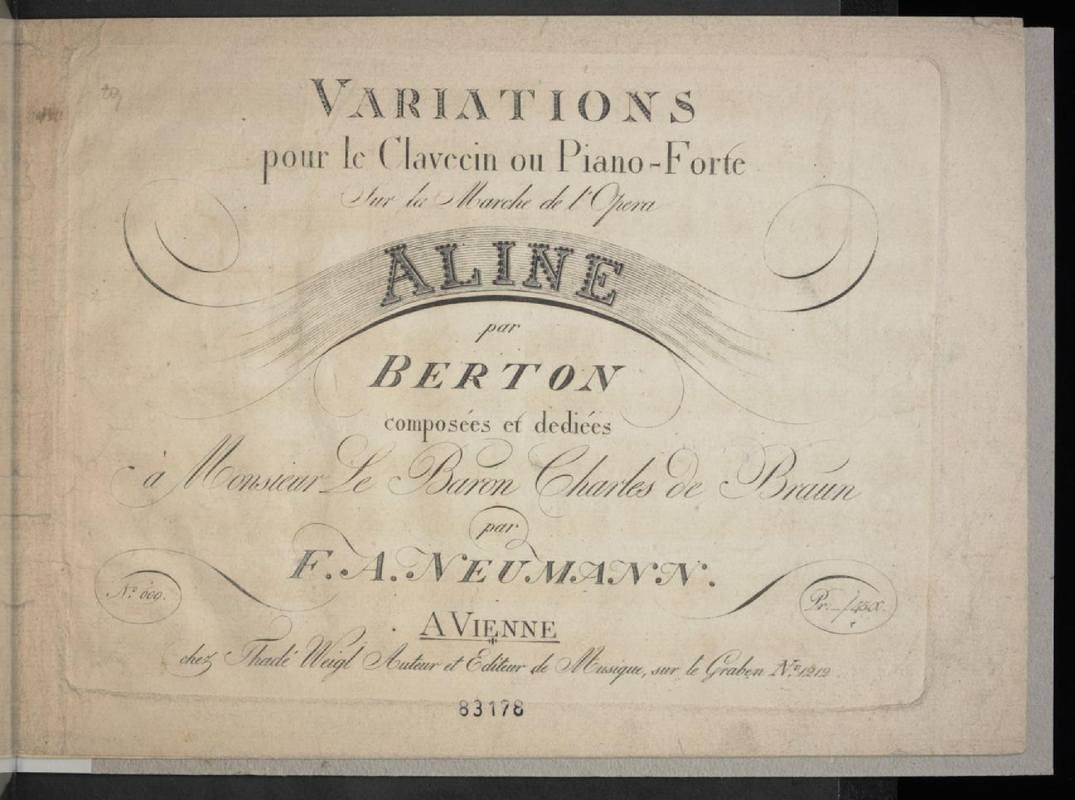 VARIATIONS
pour le Clavecin ou Piano-Forte
Sur la Marche de l'Opera
ALINE
par
BERTON
composées et dediées
à Monsieur Le Baron Charles de Braun
par
F. A. NEUMANN.
Nº 600.
A VIENNE
chez Thadé Weigl Auteur et Editeur de Musique, sur le Graben Nº 1212.
83178